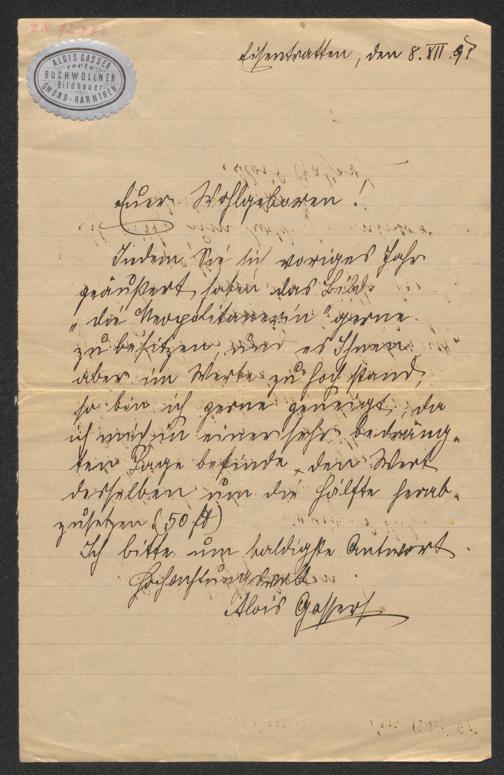 ALOIS GASSER
recte
BUCHWOLLNER
Bildhauer
GMÜND-KÄRNTHEN
Eisentratten, den 8. XII. 97
Euer Wohlgeboren!
Indem Sie sich voriges Jahr
geäußert haben das Bild
„die Neopolitanerin" gerne
zu besitzen, und es Ihnen
aber im Werte zu hoch stand,
so bin ich gerne geneigt, da
ich mich in einer sehr bedräng-
ten Lage befinde, den Wert
desselben um die Hälfte herab-
zusetzen (50 fl)
Ich bitte um baldigste Antwort.
Hochachtungsvoll
Alois Gasser